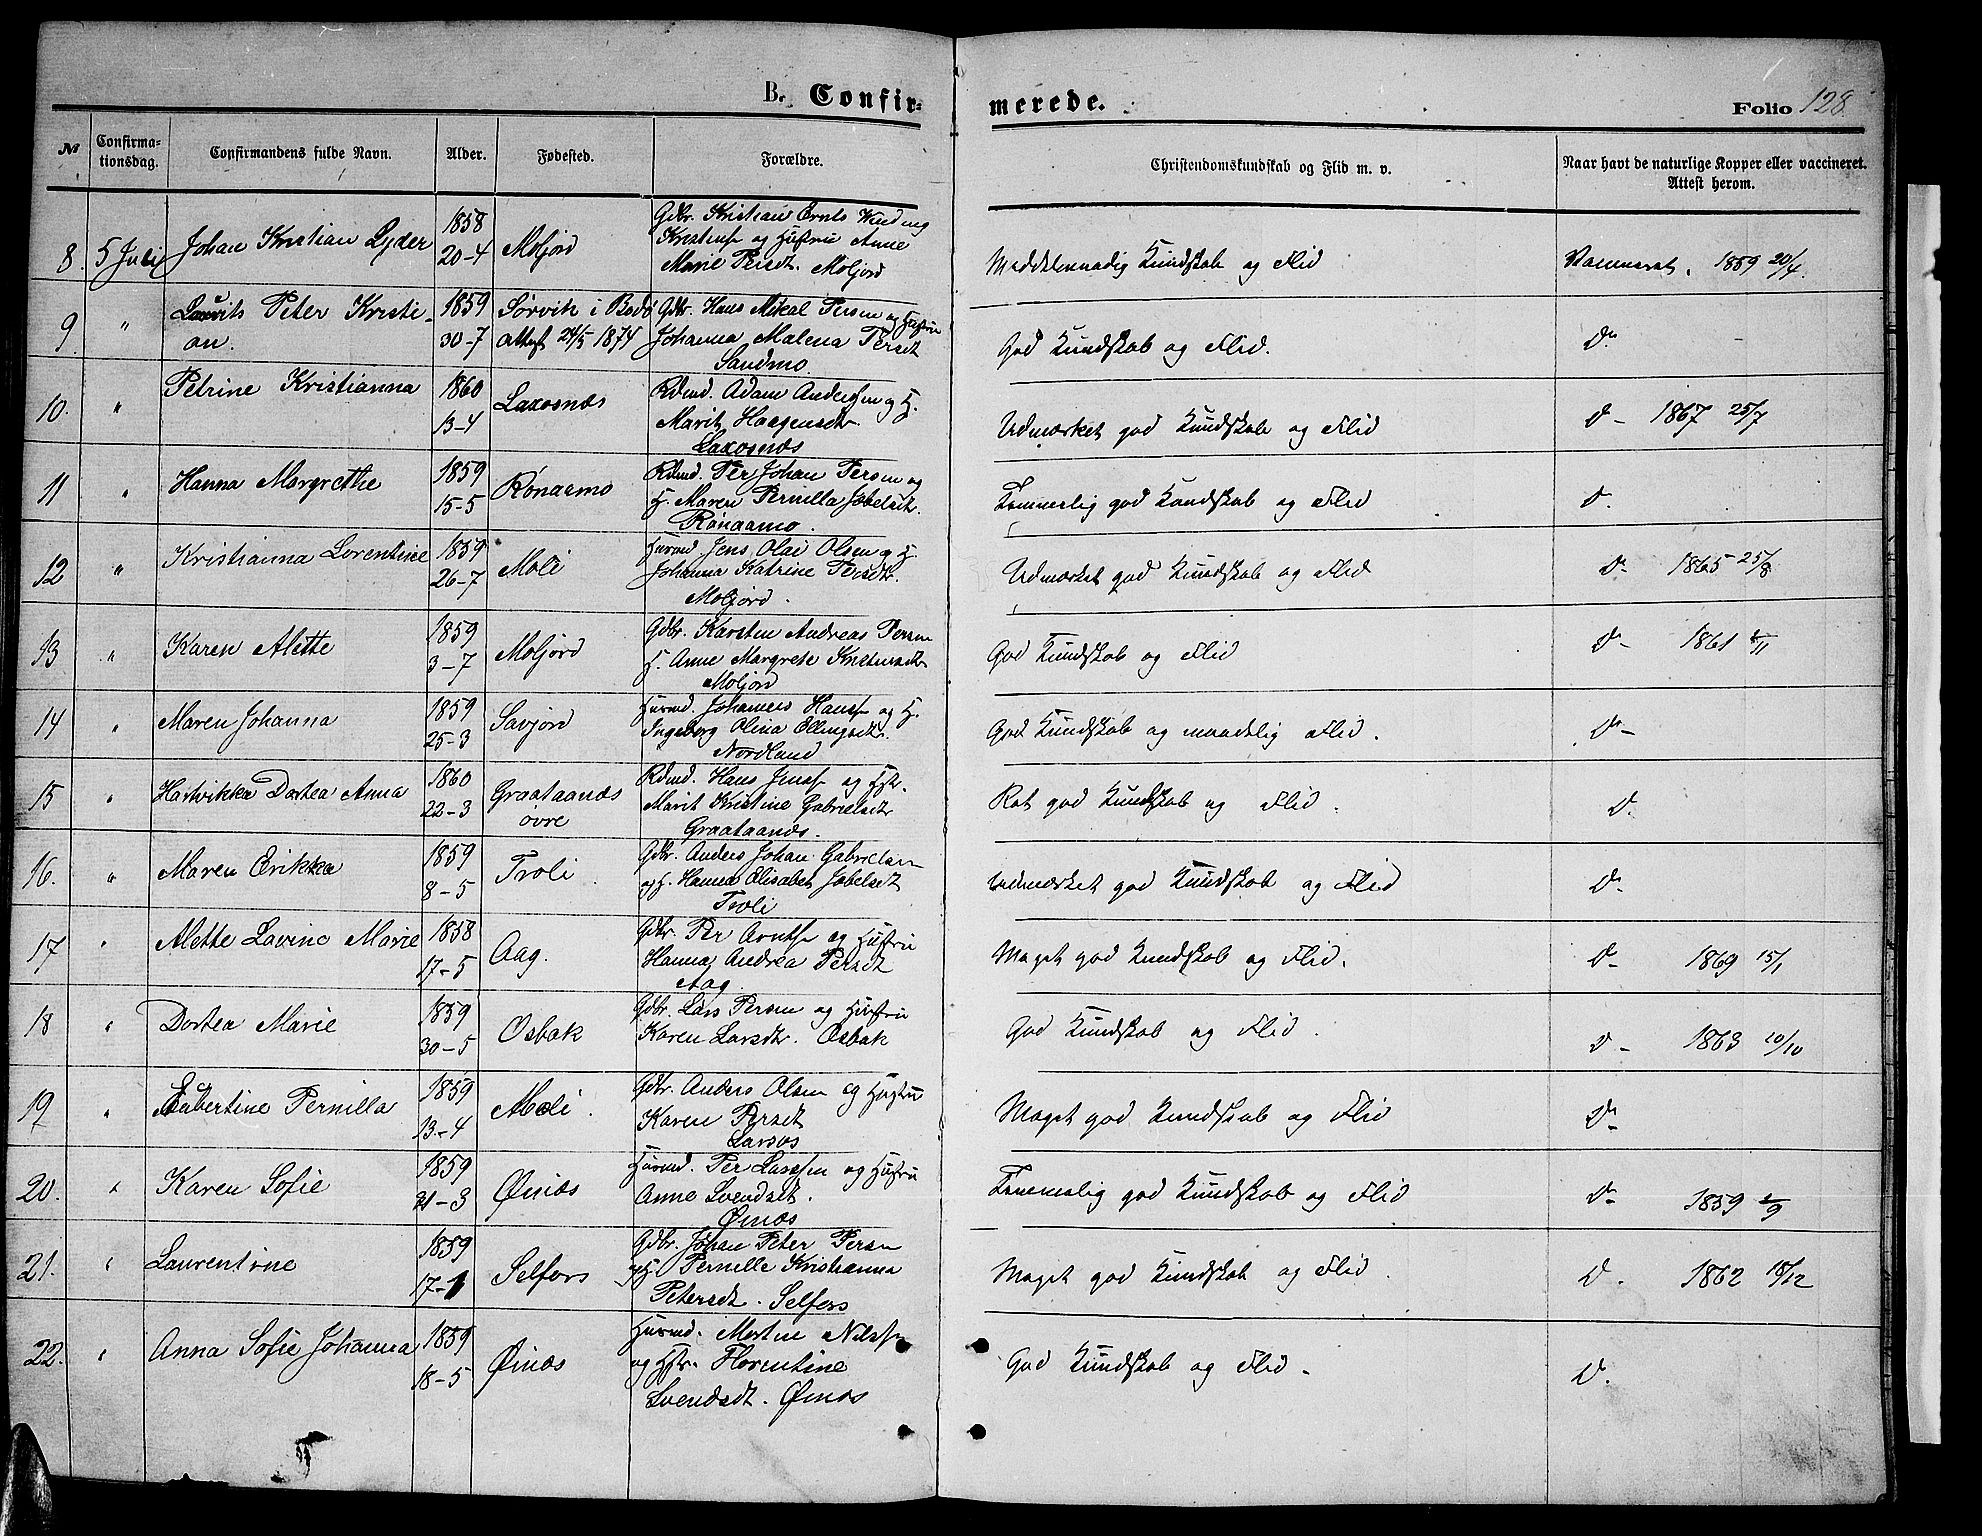 B. Confirmerede. Folio 128.
№ Confirmationsdag. Confirmandens fulde Navn. Alder. Fødested. Forældre. Christendomskundskab og Flid m. v. Naar havt de naturlige Kopper eller vaccineret. Attest herom.
8. 5 Juli Johan Kristian Lyder 1858 20-4 Moljord
Gdbr. Kristian Ernts
og Hustru Anne
Marie Persdt. Moljord
Kundskab og Flid 1859 20/4
9. " Laurits Peter Kristi-
an.
1859 30-7
Sørvik i Bodø
attest 24/5 1874
Gdbr. Hans Mikal Persen og Hustru
Johanna Malena Persdt
Sandmo
God Kundskab og Flid. d-
10. " Petrine Kristianna 1860 13-4 Laxosnæs
Rdmd. Adam Andersen og H.
Marit Haagensdtr
Laxosnæs
Udmærket god Kundskab og Flid d- 1867 25/7
11 " Hanna Margrethe 1859 15-5 Rónaamo
Rdmd. Per Johan Persen og
H. Maren Pernilla Jobelsdt.
Rónaamo.
Temmelig god Kundskab og Flid d.
12 " Kristianna Lorentine 1859 26-7 Moli
Husmd. Jens Olai Olsen og H.
Johanna Katrine Persdtr.
Moljord.
Udmærket god Kundskab og Flid d- 1865 25/8
13 " Karen Alette 1859 3-7 Moljord
Gdbr. Karsten Andreas Persen
H. Anne Margrete Kristensdtr
Moljord
God Kundskab og Flid d- 1861
14 " Maren Johanna 1859 25-3 Savjord
Husmd. Johannes Hansen og H.
Ingeborg Olina Ellingsdtr.
Nordland
God Kundskab og maadelig Flid. d-
15 " Hartvikka Dortea Anna 1860 22-3 Graataanæs
øvre
Rdmd. Hans Jensen og Hstr.
Marit Kristine Gabrielsdtr
Graataanæs.
Ret god Kundskab og Flid. d.
16. " Maren Erikka 1859 8-5 Troli
Gdbr. Anders Johan Gabrielsen
og H. Hanna Elisabet Jobelsdt
Troli
Udmærket god Kundskab og Flid d-
17 " Alette Lavina Marie 1858 17-5 Aag.
Gdbr. Per Arntsen og Hustru
Hanna Andrea Persdt
Aag
Meget god Kundskab og Flid. d- 1869 15/1
18 " Dortea Marie 1859 30-5 Osbak
Gdbr. Lars Persen og Hustru
Karen Larsdtr. Osbak
God Kundskab og Flid. d- 1863 10/10
19 " Elbertine Pernilla 1859 13-4 Moli.
Gdbr. Anders Olsen og Hustru
Karen Persdt
Larsos
Meget god Kundskab og Flid d-
20. " Karen Sofie 1859 21-3 Øinæs
Husmd. Per Larssen og Hustru
Anne Svendsdt.
Øinæs
Temmelig god Kundskab og Flid d- 1859
21. " Laurentine 1859 17-1 Selfors
Gdbr. Johan Peter Persen
og H. Pernille Kristianna
Petersdt. Selfors
Meget god Kundskab og Flid. d. 1862 18/12
22. " Anna Sofie Johanna 1859 18-5 Øinæs
Husmd. Morten Nilssen
og Hstr. Florentine
Svendsdt. Øinæs
God Kundskab og Flid. d.